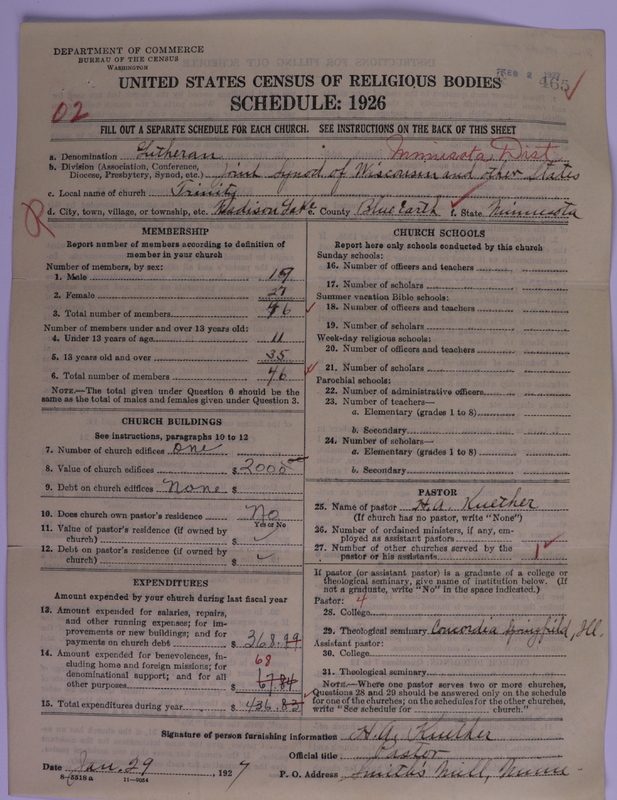 DEPARTMENT OF COMMERCE
BUREAU OF THE CENSUS
WASHINGTON
FEB 2 1927
465
UNITED STATES CENSUS OF RELIGIOUS BODIES
SCHEDULE: 1926
02
FILL OUT A SEPARATE SCHEDULE FOR EACH CHURCH. SEE INSTRUCTIONS ON THE BACK OF THIS SHEET
a. Denomination Lutheran Minnesota Dist
b. Division (Association, Conference,
Diocese, Presbytery, Synod, etc.) Joint Synod of Wisconsin and other States
c. Local name of church Trinity
R
d. City, town, village, or township, etc. Madison Lake e. County Blue Earth f. State Minnesota
MEMBERSHIP
Report number of members according to definition of
member in your church
Number of members, by sex:
1. Male 19
2. Female 27
3. Total number of members 46
Number of members under and over 13 years old:
4. Under 13 years of age 11
5. 13 years old and over 35
6. Total number of members 46
NOTE.—The total given under Question 6 should be the
same as the total of males and females given under Question 3.
CHURCH BUILDINGS
See instructions, paragraphs 10 to 12
7. Number of church edifices one
8. Value of church edifices $ 2000
9. Debt on church edifices None $
10. Does church own pastor's residence No
Yes or No
11. Value of pastor's residence (if owned by
church) $
12. Debt on pastor's residence (if owned by
church) $
EXPENDITURES
Amount expended by your church during last fiscal year
13. Amount expended for salaries, repairs,
and other running expenses; for im-
provements or new buildings; and for
payments on church debt $ 368.99
14. Amount expended for benevolences, in-
cluding home and foreign missions; for
denominational support; and for all
other purposes $ 68 67.84
15. Total expenditures during year $ 436.83
CHURCH SCHOOLS
Report here only schools conducted by this church
Sunday schools:
16. Number of officers and teachers
17. Number of scholars
Summer vacation Bible schools:
18. Number of officers and teachers
19. Number of scholars
Week-day religious schools:
20. Number of officers and teachers
21. Number of scholars
Parochial schools:
22. Number of administrative officers
23. Number of teachers—
a. Elementary (grades 1 to 8)
b. Secondary
24. Number of scholars—
a. Elementary (grades 1 to 8)
b. Secondary
PASTOR
25. Name of pastor H.A. Kuether
(If church has no pastor, write "None")
26. Number of ordained ministers, if any, em-
ployed as assistant pastors
27. Number of other churches served by the
pastor or his assistants 1
If pastor (or assistant pastor) is a graduate of a college or
theological seminary, give name of institution below. (If
not a graduate, write "No" in the space indicated.)
Pastor: 4
28. College
29. Theological seminary Concordia Springfield, Ill.
Assistant pastor:
30. College
31. Theological seminary
NOTE.—Where one pastor serves two or more churches,
Questions 28 and 29 should be answered only on the schedule
for one of the churches; on the schedules for the other churches,
write "See schedule for church."
Signature of person furnishing information H. A. Kuether
Official title Pastor
Date Jan. 29, 1927 P. O. Address Smith's Mill, Minn
8-5518a 11-9054